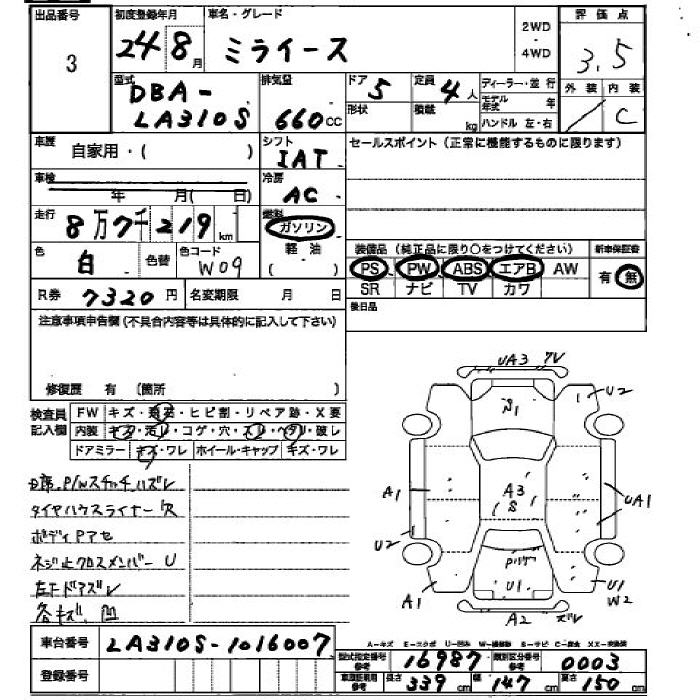 出品番号
3
初度登録年月
24 8 月
車名・グレード
ミライース
2WD
・
4WD
評価点
3.5
外装 内装
C
型式
DBA-
LA310S
排気量
660 cc
ドア
5
形状
定員
4 人
積載
kg
ディーラー・並行
モデル年式 年
ハンドル 左・右
車歴
自家用・( )
シフト
IAT
セールスポイント（正常に機能するものに限ります）
車検
年 月( 日)
冷房
AC
走行
8万7千219 km
燃料
ガソリン
軽油
( )
色
白
色替
色コード
W09
装備品（純正品に限り○をつけてください）
新車保証書
PS PW ABS エアB AW
有・無
SR ナビ TV カワ
R券 7320 円
名変期限 月 日
後日品
注意事項申告欄（不具合内容等は具体的に記入して下さい）
修復歴 有 (箇所 )
検査員記入欄
FW キズ・飛石・ヒビ割・リペア跡・X要
内装 キズ・汚レ・コゲ・穴・スレ・ヘタリ・破レ
ドアミラー キズ・ワレ ホイール・キャップ キズ・ワレ
D席、P/Wスイッチハズレ
タイヤハウスライナーヌケ
ボディアセ
ネジ止クロスメンバーU
左F.ドアズレ
各キズ、凹
UA3 ズレ
U2
S1
A1
A3
S
UA1
U2
Pハゲ
U1
U1
W2
A1
A2 ズレ
車台番号
LA310S-1016007
登録番号
A－キズ E－エクボ U－凹み W－補修跡 S－サビ C－腐食 XX－交換済
型式指定番号
参考
16987
類別区分番号
参考
0003
車庫証明用
参考
長さ 339 cm 幅 147 cm 高さ 150 cm